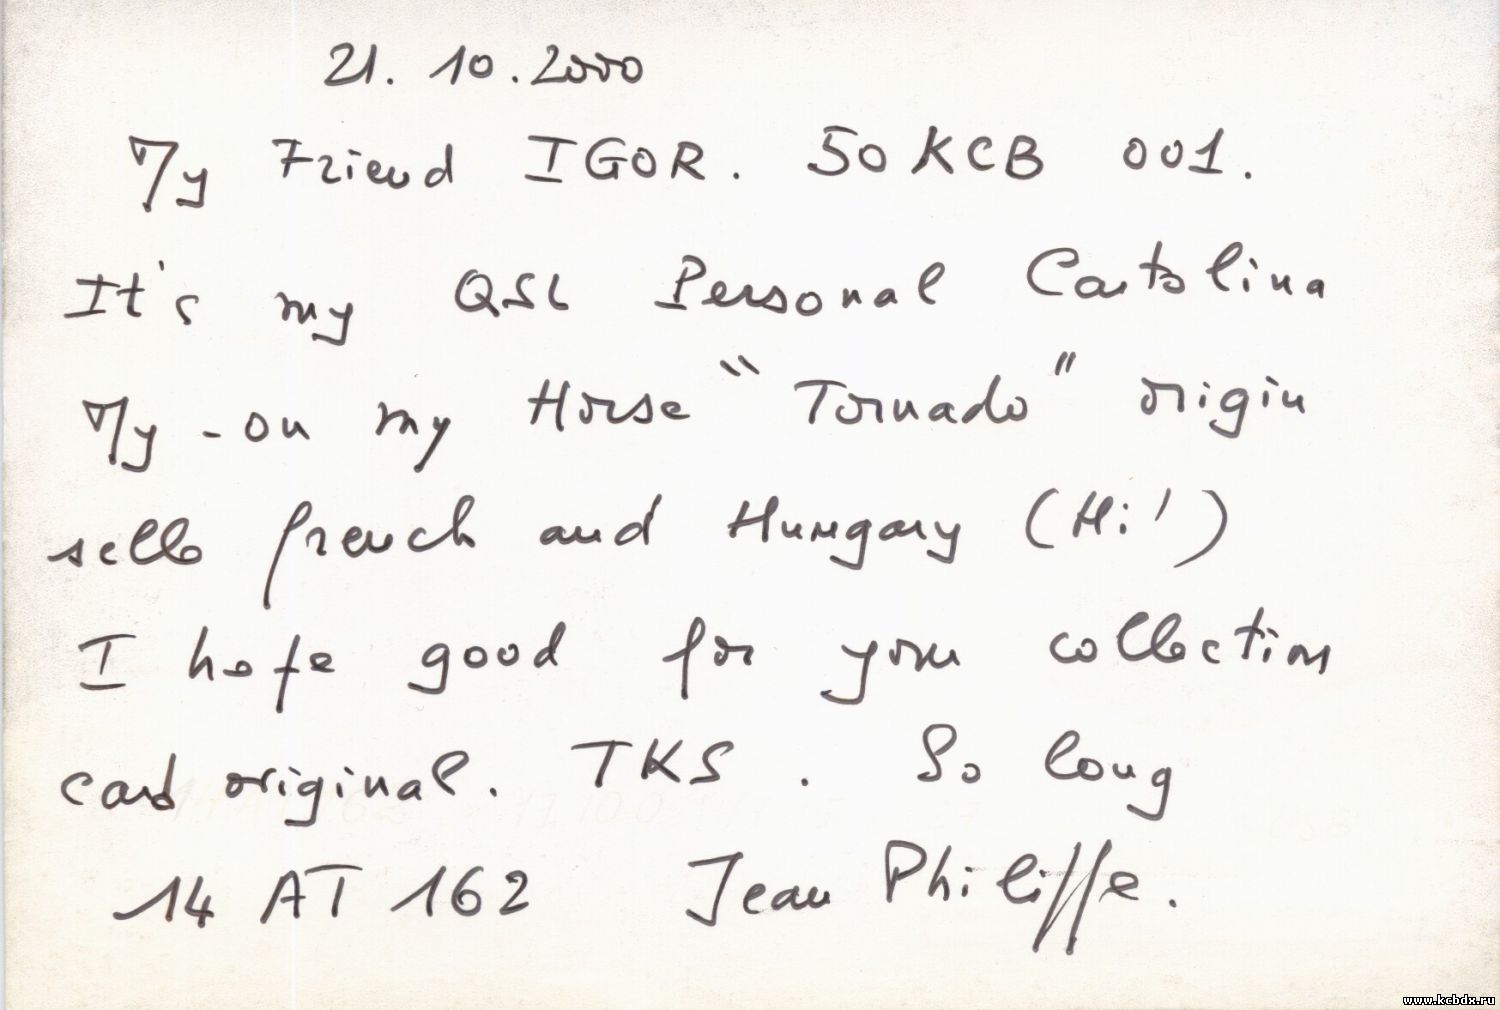 21. 10. 2000
My Friend IGOR. 50 KCB 001.
It's my QSL Personal Cartolina
My - on my Horse "Tornado" origin
sello french and Hungary (Hi!)
I hope good for your collection
card original. TKS. So long
14 AT 162 Jean Philippe.
www.kcbdx.ru